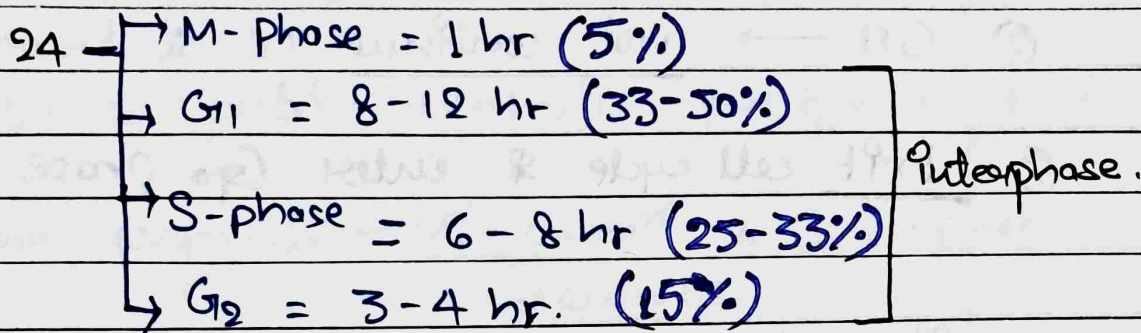 24 → M-Phase = 1 hr (5%)
→ G1 = 8-12 hr (33-50%)
→ S-phase = 6-8 hr (25-33%)
→ G2 = 3-4 hr. (15%)
interphase.